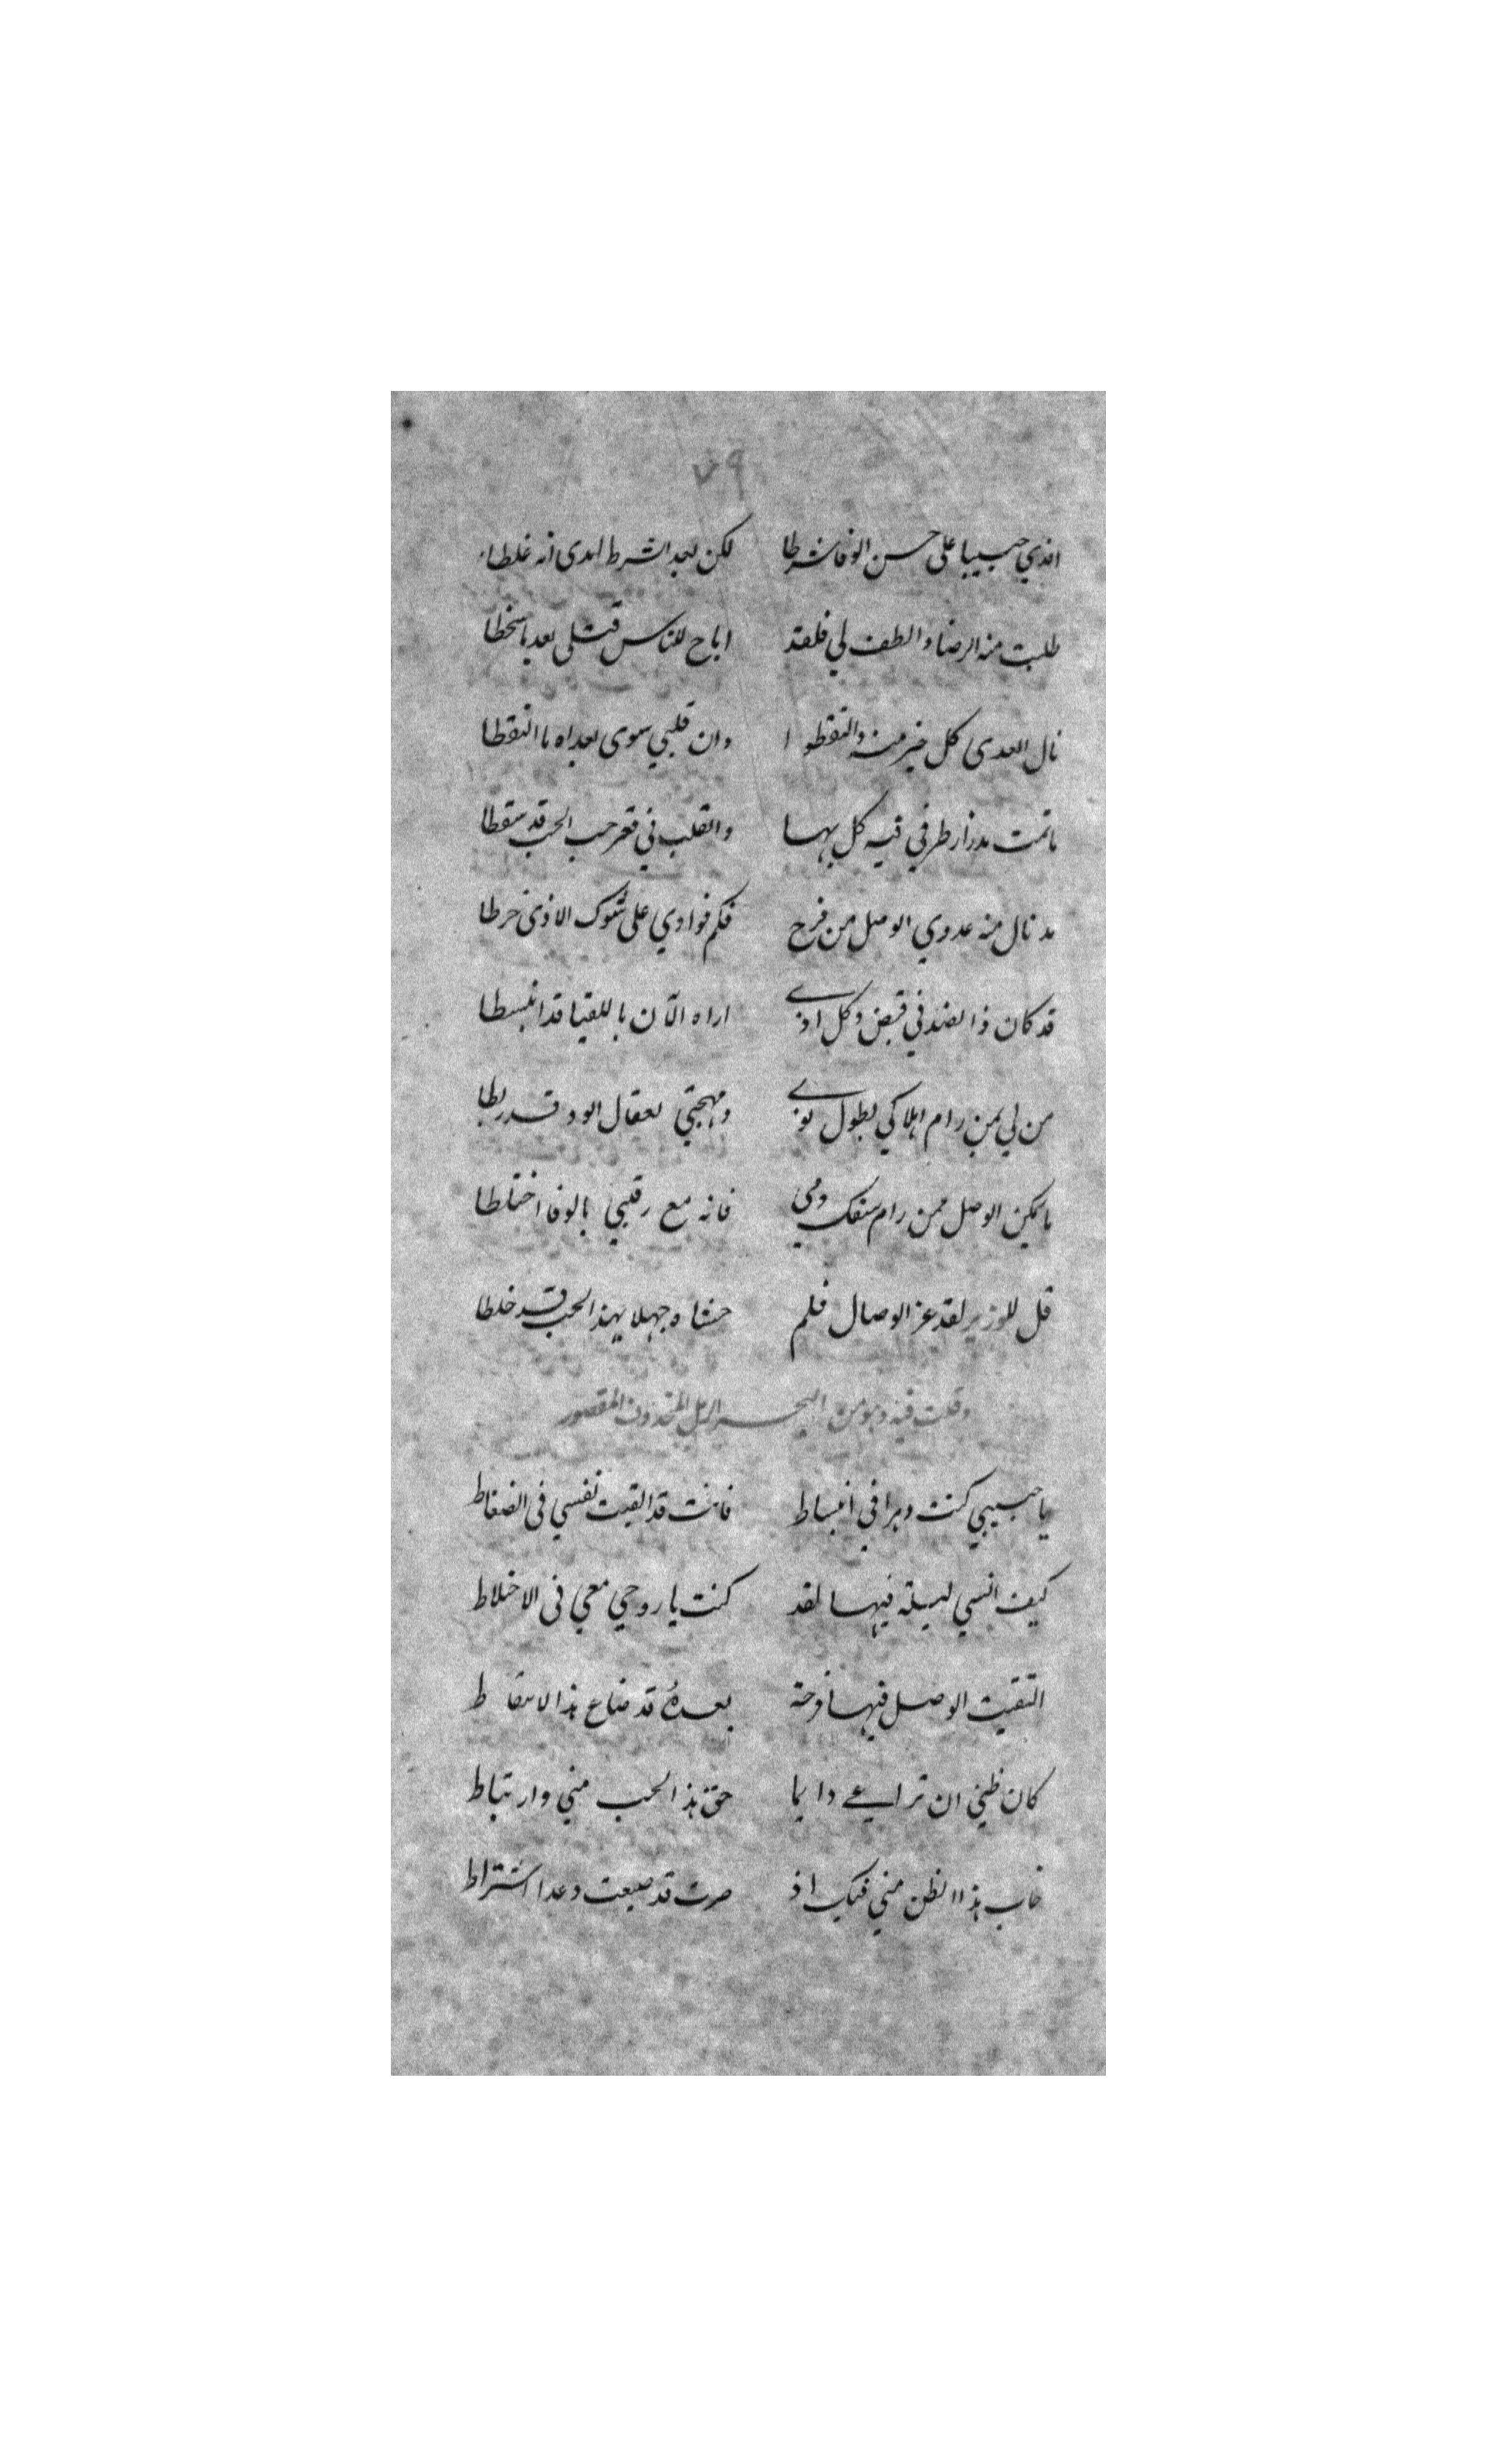 ٧٩
افدي حبيبا على حسن الوفا شرطا لكن بعد الشرط ابدى انه غلطا
طلبت منه الرضا والطف لي فلقد اباح للناس قتلي بعد ما سخطا
نال العدى كل خير منه والتقطوا وان قلبي سوى بعداه ما التقطا
ما تمت مدزار طرفي فيه كل بها والقلب في قعر جب الحب قد سقطا
مد نال منه عدوي الوصل من فرح فكم فوادي على شوك الاذى خرطا
قد كان ذا الضد في قبض وكل اذى اراه الآن باللقيا قد انبسطا
من لي بمن رام اهلاكي بطول نوى ومهجتي بعقال الود قد ربطا
ما يمكن الوصل ممن رام سفك دمي فانه مع رقيبي بالوفا اختلطا
قل للوزير لقد عز الوصال فلم حشاه جهلا بهذ الحب قد خلطا
وقلت فيه وهو من البحر الرمل المحذوف المقصور
يا حبيبي كنت دهرا في انبساط فانت قد القيت نفسي في الضغاط
كيف انسي ليلة فيها لقد كنت يا روحي معي في الاختلاط
التقيت الوصل فيها فرحة بعده قد ضاع هذا الالتقاط
كان ظني ان تراعي دايما حق هذ الحب مني وارتباط
خاب هذا الظن مني فيك اذ صرت قد ضيعت وعدا اشتراط